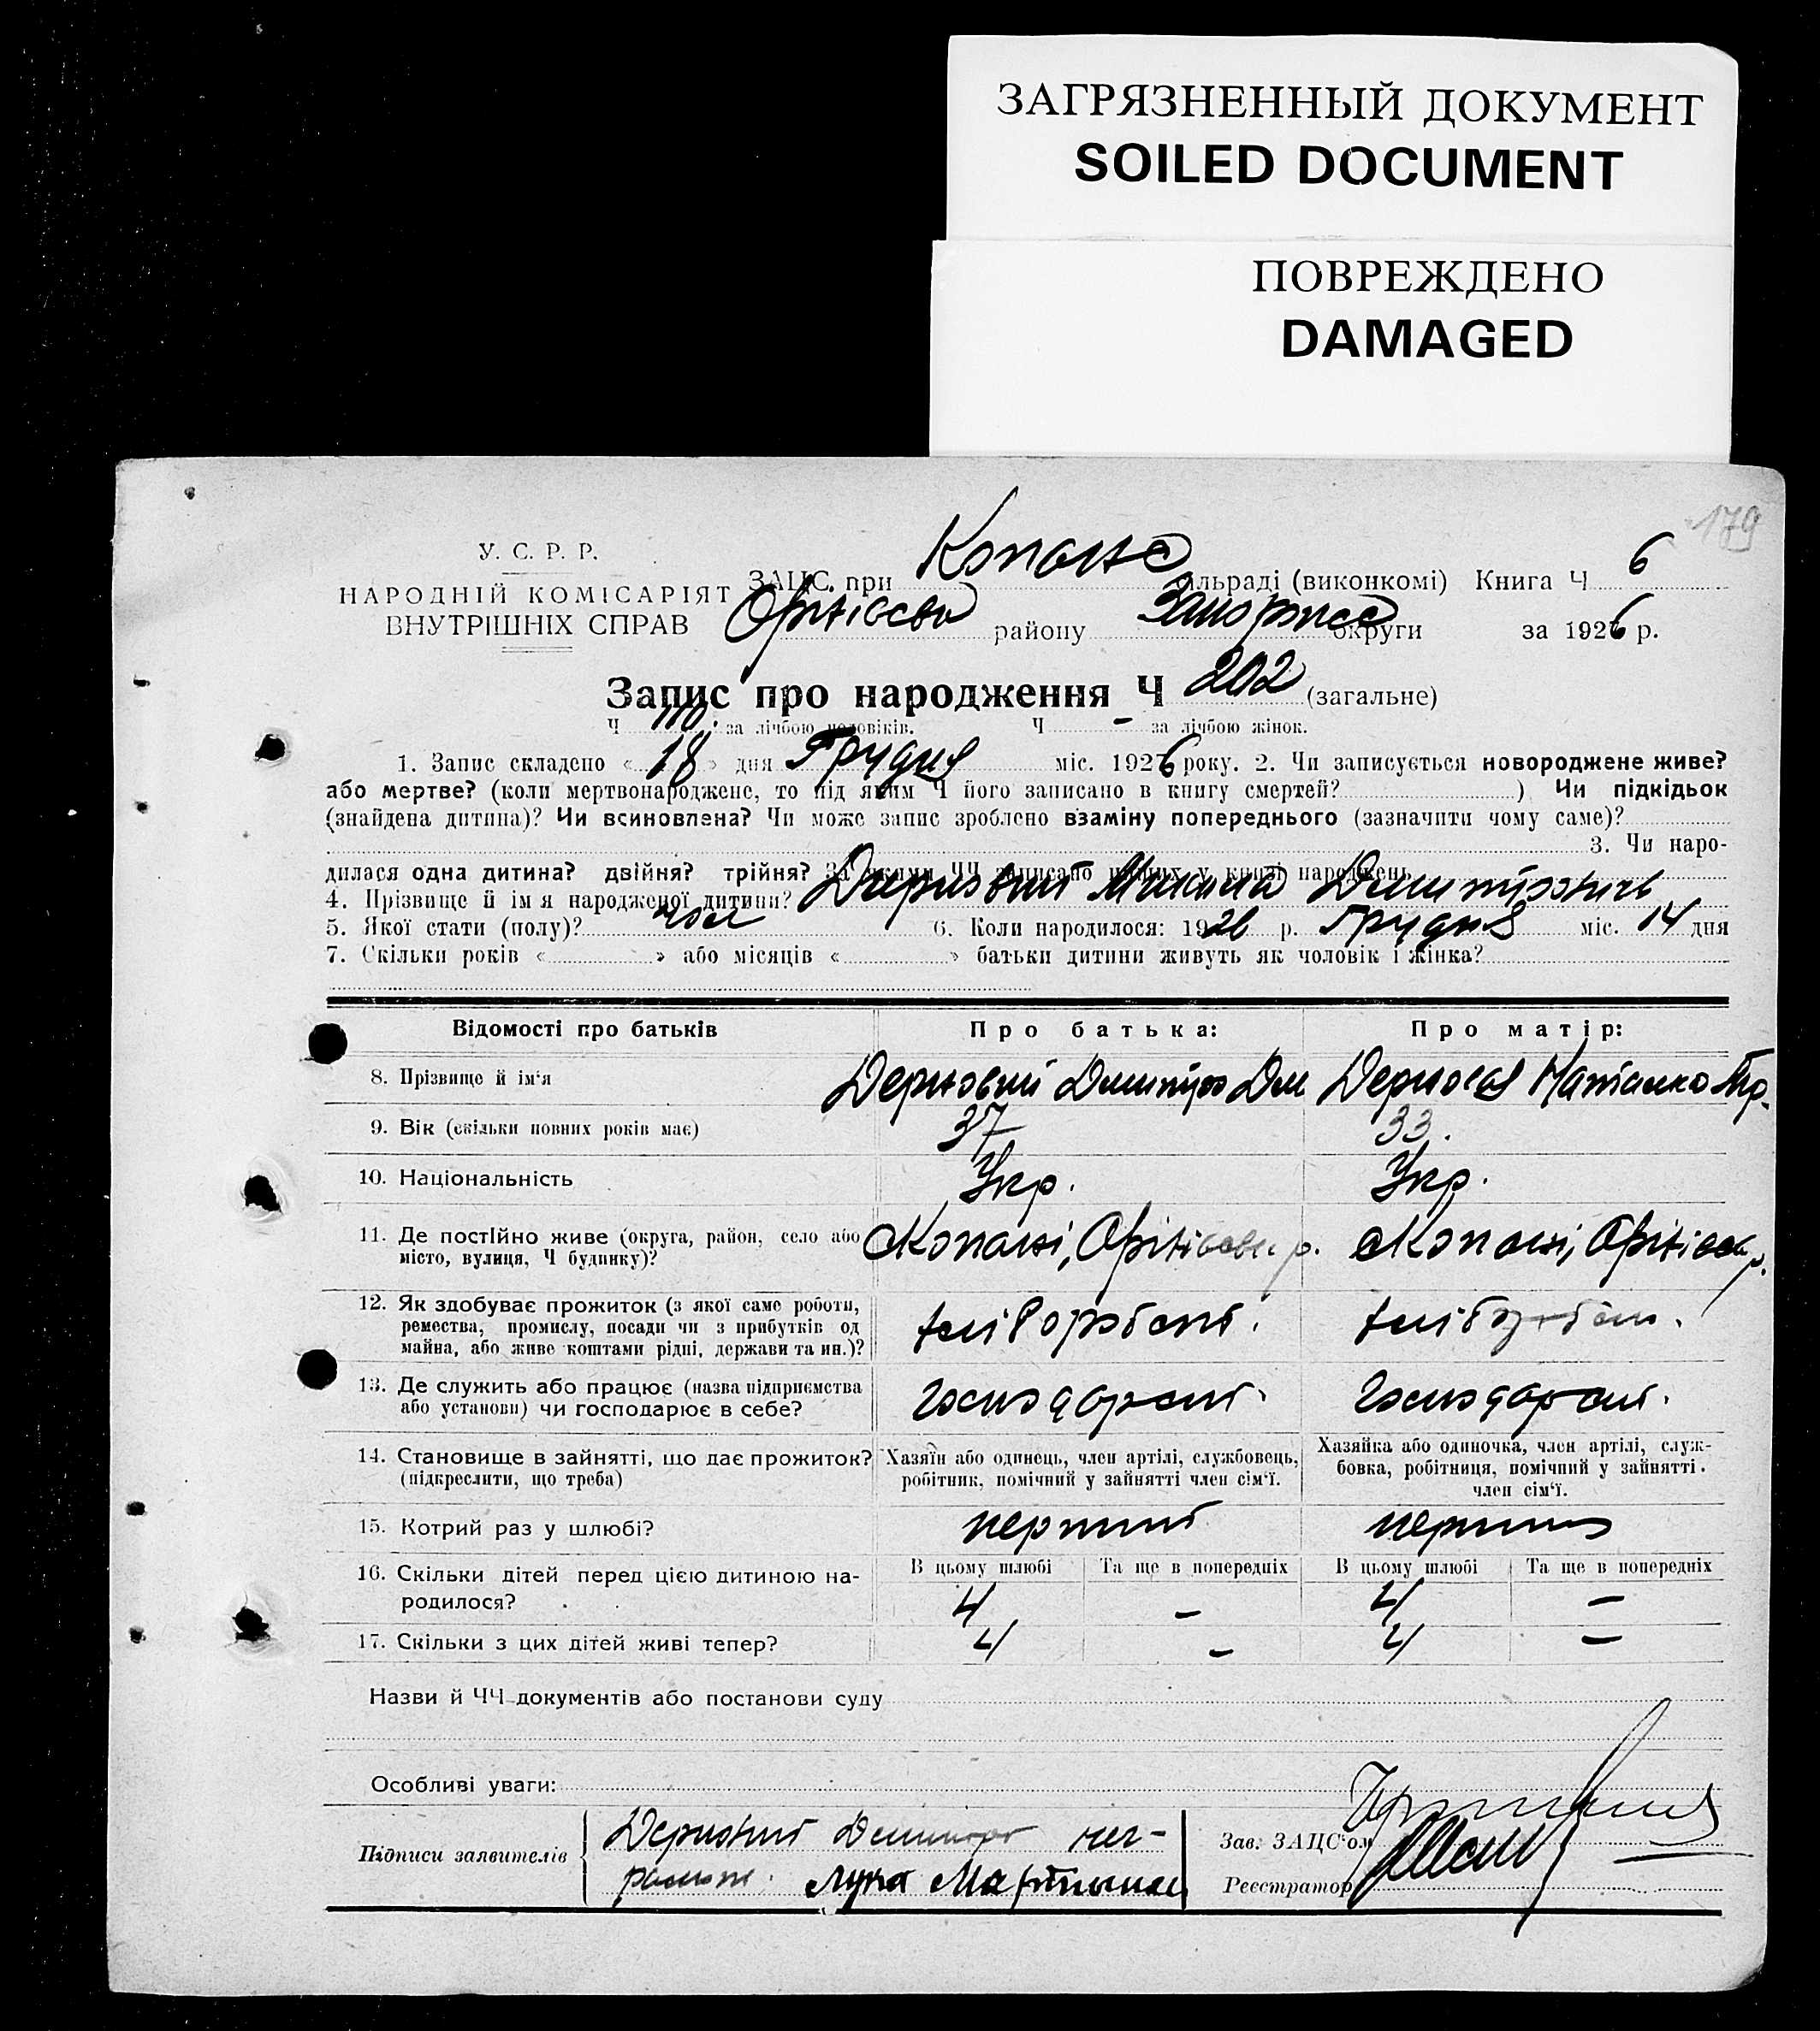 ЗАГРЯЗНЕННЫЙ ДОКУМЕНТ
SOILED DOCUMENT
ПОВРЕЖДЕНО
DAMAGED
179
У. С. Р. Р.
НАРОДНІЙ КОМІСАРІЯТ
ВНУТРІШНІХ СПРАВ
ЗАЦС. при Копанс сільраді (виконкомі) Книга Ч 6
Оріхівськ району Запоріжс округи за 1926 р.
Запис про народження Ч 202 (загальне)
Ч 110 за лічбою чоловіків. Ч – за лічбою жінок.
1. Запис складено « 18 » дня Грудня міс. 1926 року. 2. Чи записується новороджене живе?
або мертве? (коли мертвонароджене, то під яким Ч його записано в книгу смертей? ) Чи підкідьок
(знайдена дитина)? Чи всиновлена? Чи може запис зроблено взаміну попереднього (зазначити чому саме)?
3. Чи наро-
дилася одна дитина? двійня? трійня? За якими ЧЧ записано інших у книзі народжень
4. Прізвище й ім'я народженої дитини? Дерновий Микола Дмитрович
5. Якої стати (полу)? чол 6. Коли народилося: 1926 р. Грудня міс. 14 дня
7. Скільки років « » або місяців « » батьки дитини живуть як чоловік і жінка?
Відомості про батьків Про батька: Про матір:
8. Прізвище й ім'я Дерновий Дмитро Дм Дернова Наталка Пр.
9. Вік (скільки повних років має) 37 33.
10. Національність Укр. Укр.
11. Де постійно живе (округа, район, село або місто, вулиця, Ч будинку)? Копані, Оріхівськ р. Копані, Оріхівс р.
12. Як здобуває прожиток (з якої саме роботи,
ремества, промислу, посади чи з прибутків од
майна, або живе коштами рідні, держави та ин.)? хліборобст.
13. Де служить або працює (назва підприємства
або установи) чи господарює в себе? господарст. господарст.
14. Становище в зайнятті, що дає прожиток?
(підкреслити, що треба)
Хазяїн або одинець, член артілі, службовець,
робітник, помічний у зайнятті член сім'ї.
Хазяйка або одиночка, член артілі, служ-
бовка, робітниця, помічний у зайнятті.
член сім'ї.
15. Котрий раз у шлюбі? перший перший
16. Скільки дітей перед цією дитиною на-
родилося?
В цьому шлюбі Та ще в попередніх В цьому шлюбі Та ще в попередніх
4 – 4 –
17. Скільки з цих дітей живі тепер? 4 – 4 –
Назви й ЧЧ документів або постанови суду
Особливі уваги:
Підписи заявителів
Дерновий Дмитро
Лука
Зав. ЗАЦС'ом
Реєстратор